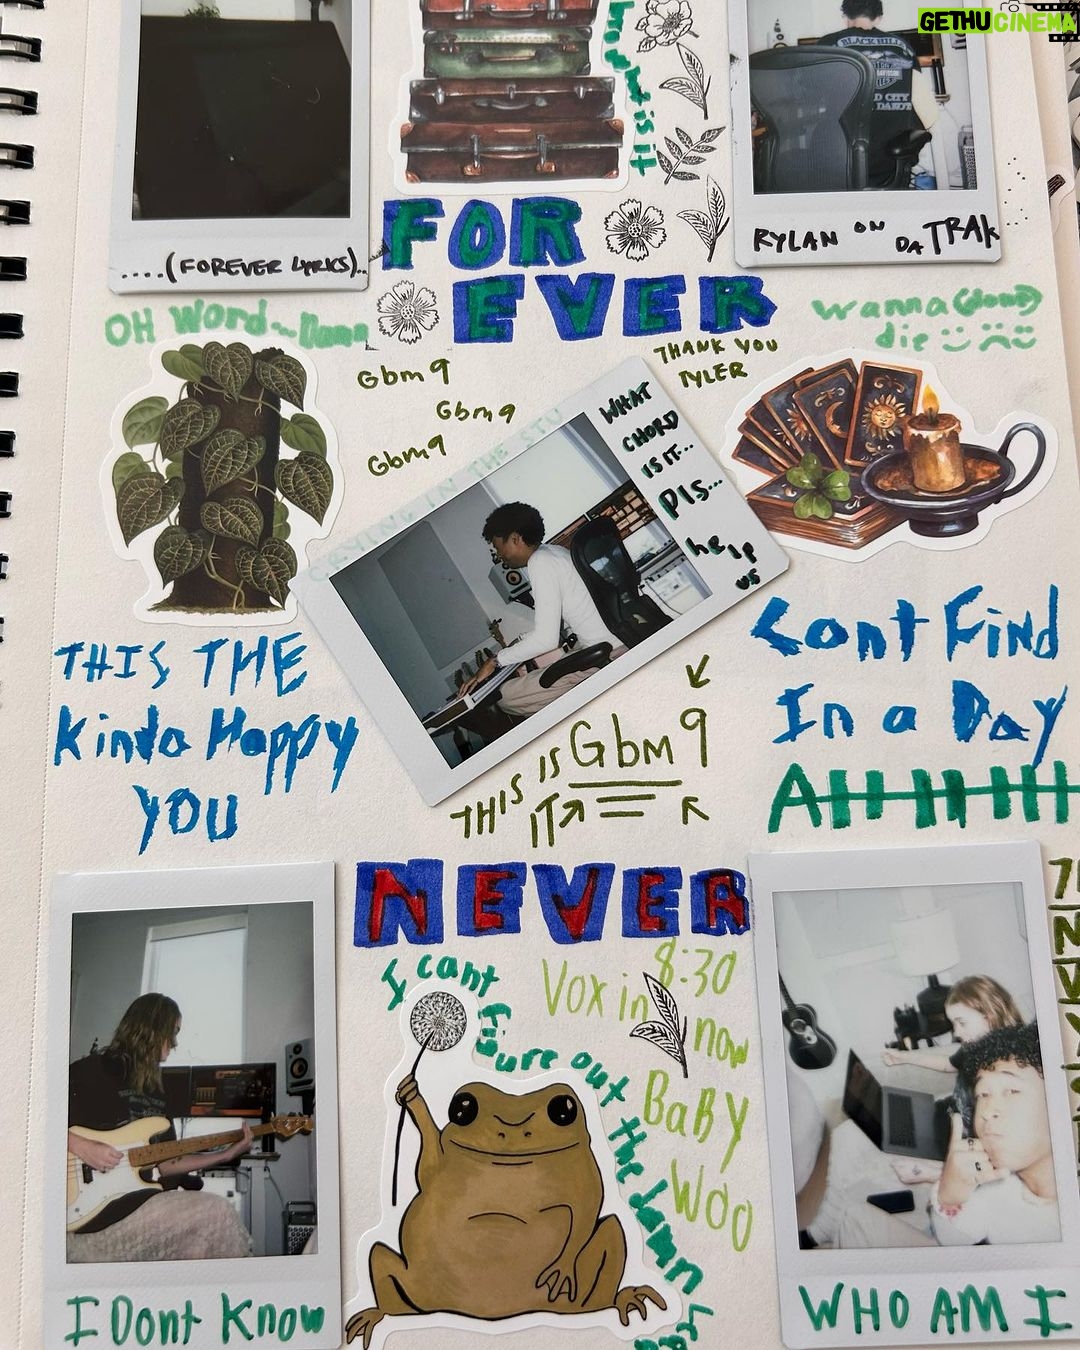 GETHUCINEMA
what is it
BLACK HILLS
DAVIDSON
CITY
DAKOTA
....(FOREVER LYRICS)..
RYLAN ON DA TRAK
FOR
EVER
OH Word~Damn
wanna (dont)
die
THANK YOU
TYLER
Gbm9
Gbm9
Gbm9
CRYING IN THE STU
WHAT
CHORD
IS IT...
PlS...
help
us
THIS THE
Kinda Happy
YOU
Cant Find
In a Day
AHHHHH
THIS IS Gbm9
IT
NEVER
I cant figure out the damn
8:30
Vox in
now
BaBy
Woo
I Dont Know
WHO AM I